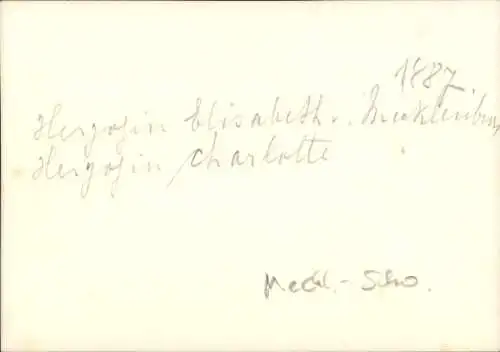 1887.
Herzogin Elisabeth v. Mecklenburg
Herzogin Charlotte
Meckl.-Schw.